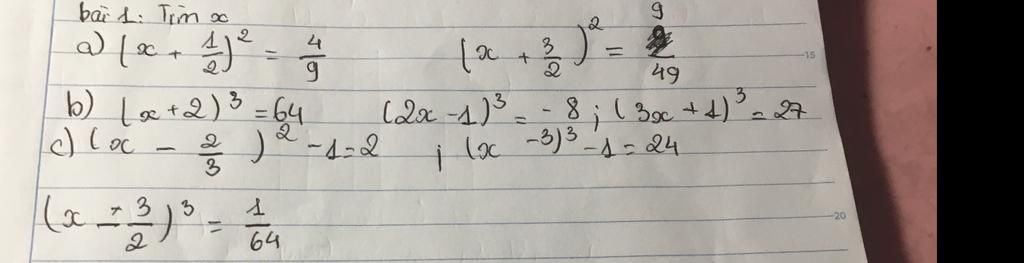 bài 1: Tìm x
a) (x + 1/2)² = 4/9 (x + 3/2)² = 9/49
b) (x+2)³ = 64 (2x-1)³ = -8 ; (3x+1)³ = 27
c) (x - 2/3)² - 1 = 2 ; (x - 3)³ - 1 = 24
(x - 3/2)³ = 1/64
15
20